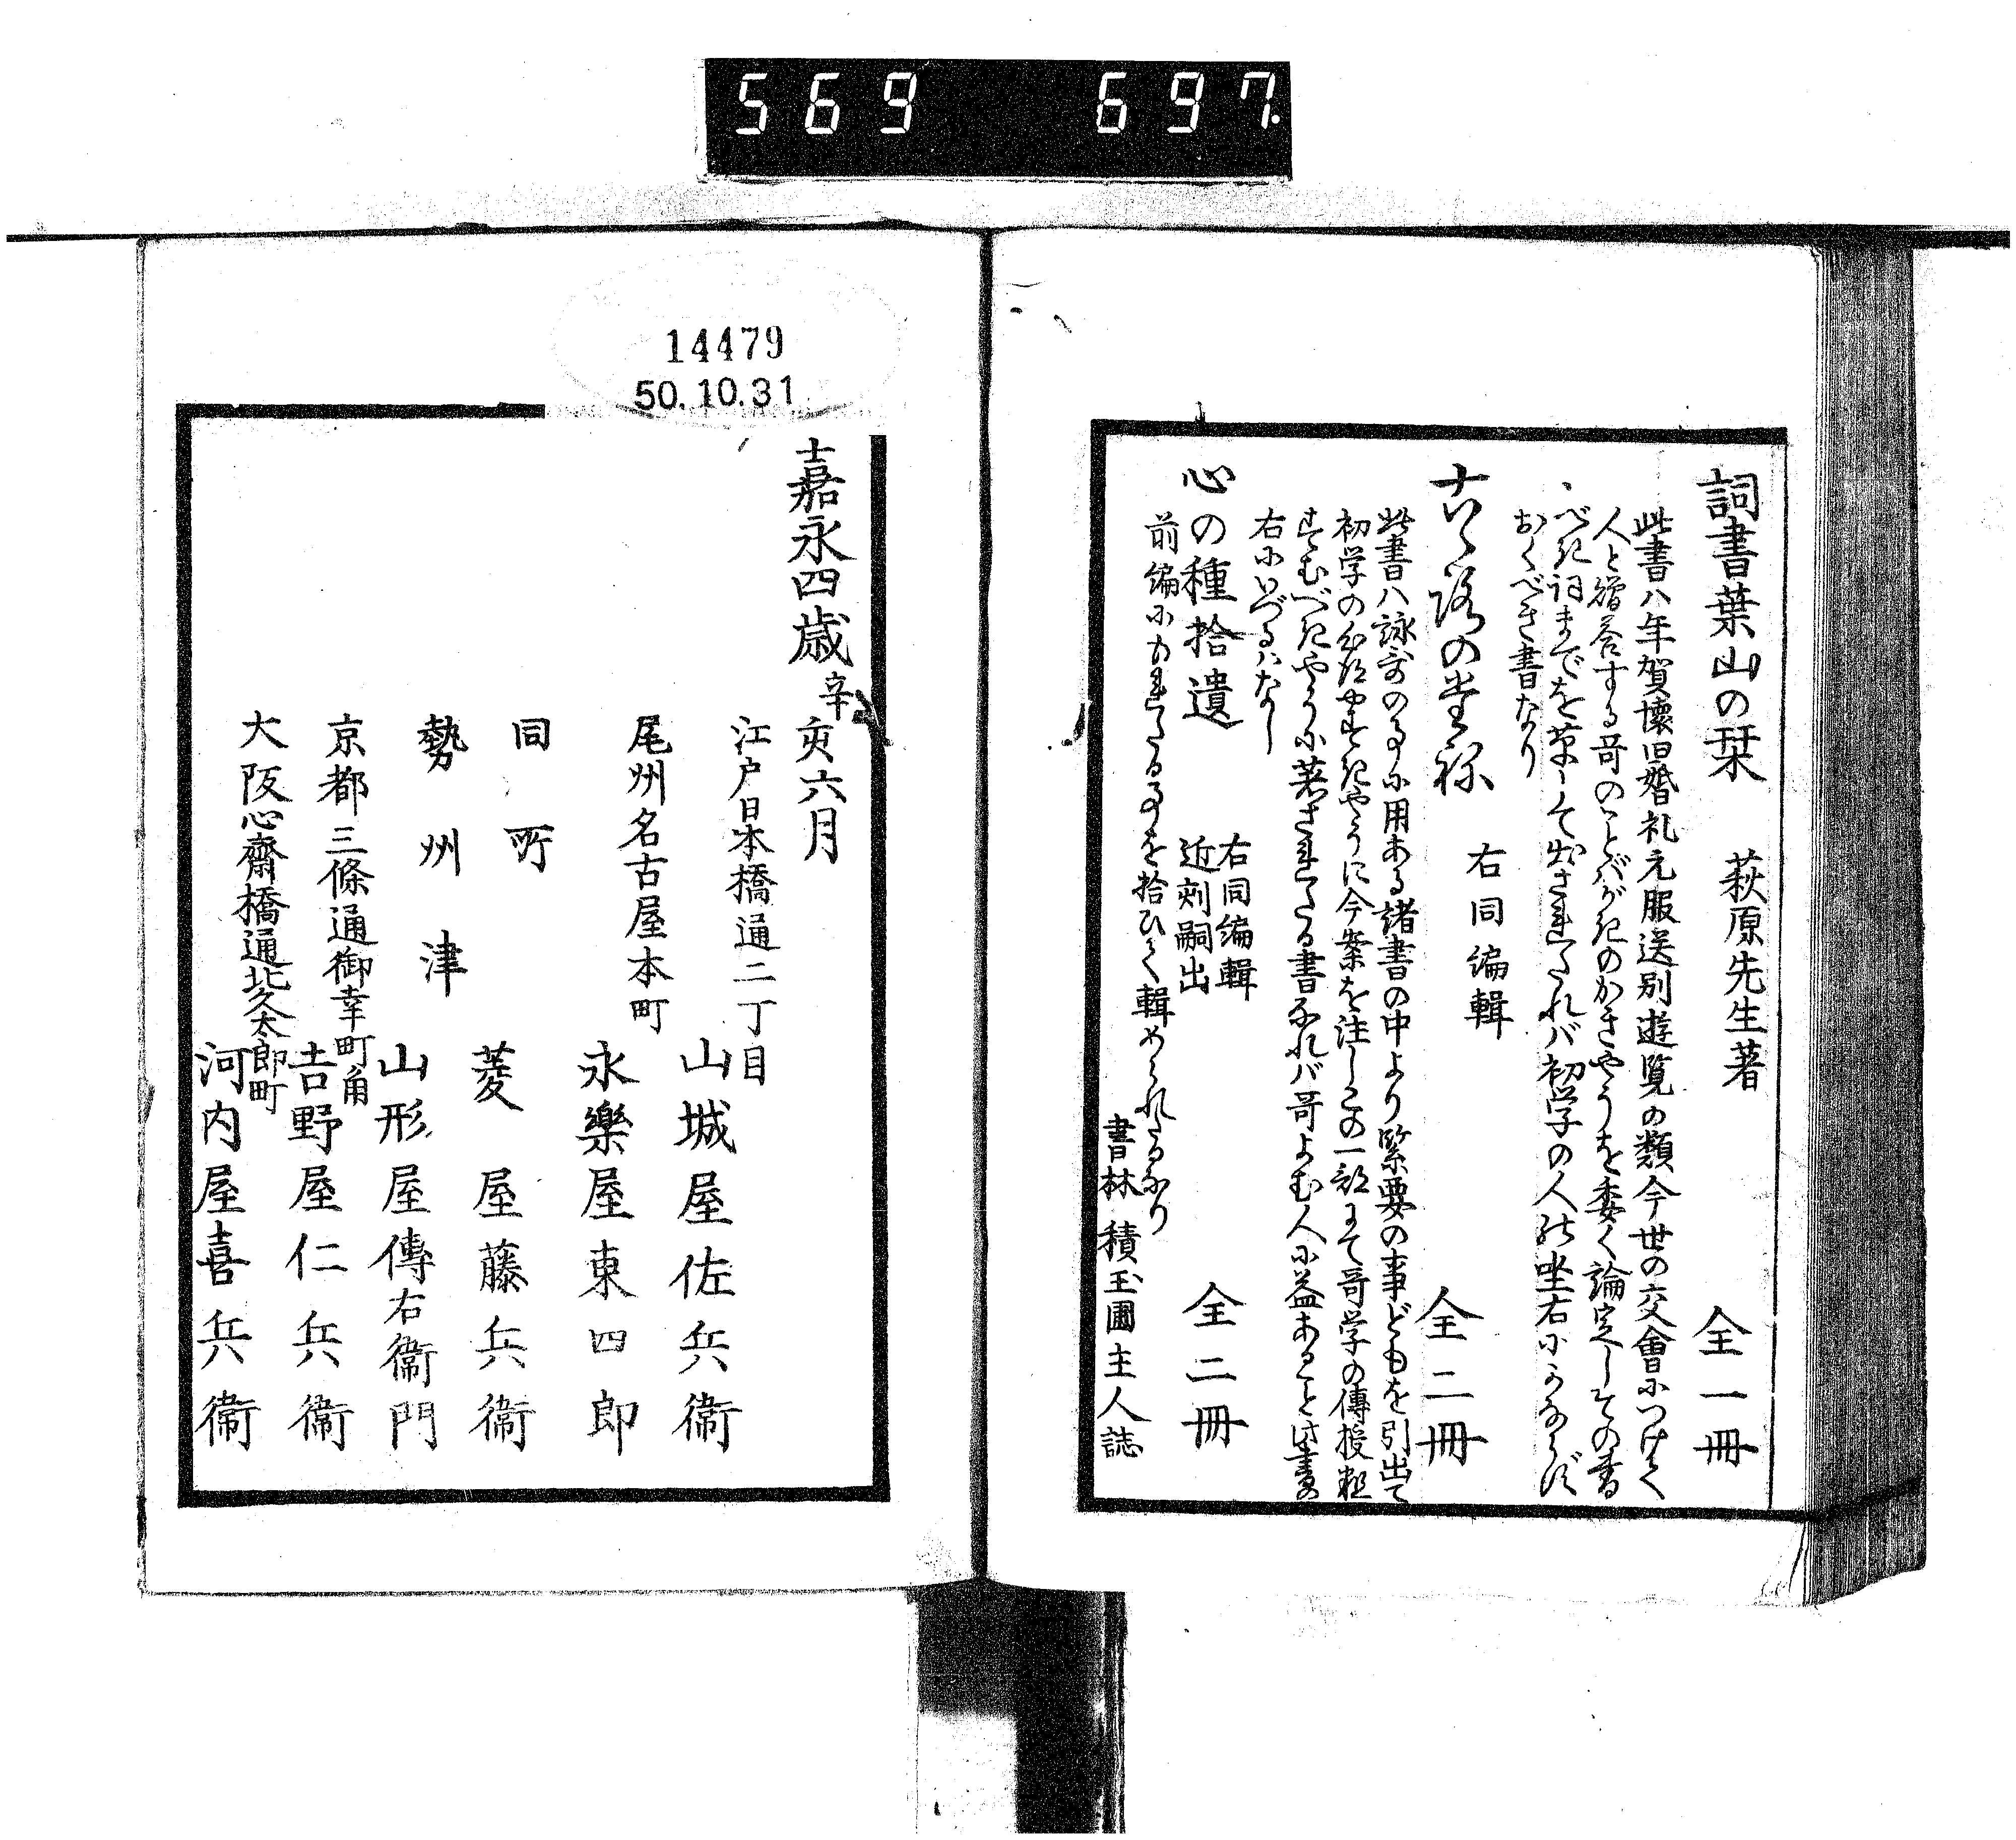 569 697.
詞書葉山の栞 萩原先生著 全一冊
此書ハ年賀懐旧婚礼元服送別遊覧の類今世の交會につけて
人と贈答する哥のことバがきのかきやうを委く論定しその書
べき詞までを草して出されたれバ初学の人の坐右に
おくべき書なり
古ゝ路の堂祢 右同編輯 全二冊
此書ハ詠哥の事に用ある諸書の中より緊要の事どもを引出て
初学の心得やすきやうに今案を注しこの一部にて哥学の傳授粗
すむべきやうに著されたる書なれバ哥よむ人に益あること此書の
右にいづるハなし
心の種拾遺 右同編輯 近刻嗣出 全二冊
前編にもれたる事を拾ひて輯められたるなり
書林 積玉圃主人誌
14479
50.10.31
嘉永四歳辛亥六月
江戸日本橋通二丁目 山城屋佐兵衞
尾州名古屋本町 永樂屋東四郎
同町 菱屋藤兵衞
勢州津 山形屋傳右衞門
京都三條通御幸町角 吉野屋仁兵衞
大阪心齋橋通北久太郎町 河内屋喜兵衞